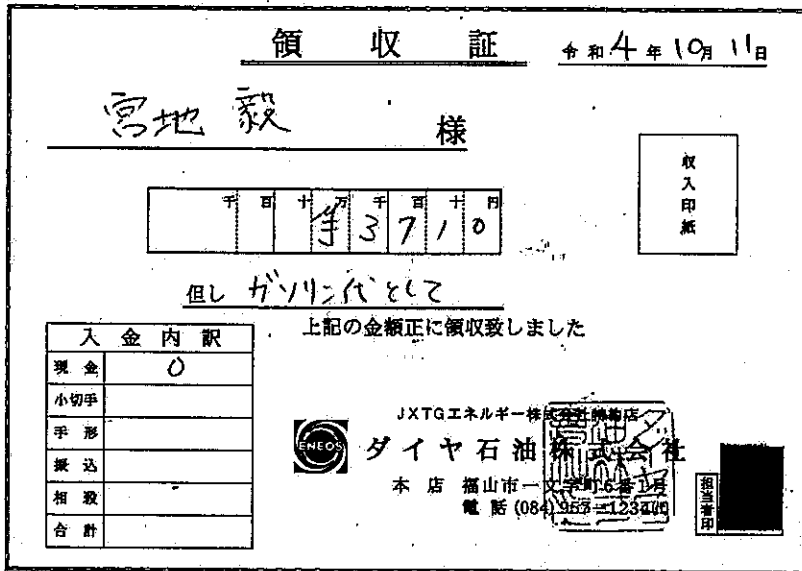 領収証
令和4年10月11日
宮地 毅 様
収入印紙
千百十万千百十円
¥3710
但し ガソリン代として
上記の金額正に領収致しました
入金内訳
現金 0
小切手
手形
振込
相殺
合計
JXTGエネルギー株式会社特約店
ENEOS
ダイヤ石油株式会社
本店 福山市一文字町6番1号
電話(084)957-123
担当者印